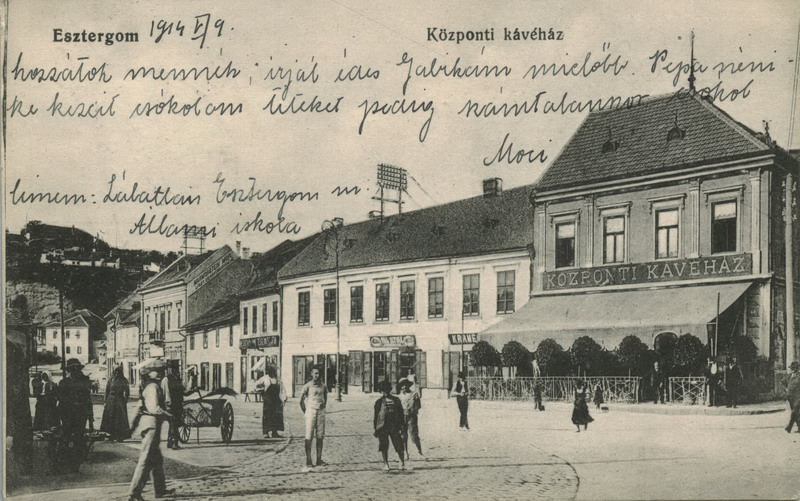 Esztergom 1914 V/9.
Központi kávéház
hozzátok mennék, irjál édes Gabikám mielőbb. Pepa néni
ke kezeit csókolom titeket pedig számtalanszor csókol
Moci
Címem: Lábatlan Esztergom m.
Állami iskola
KÖZPONTI KÁVÉHÁZ